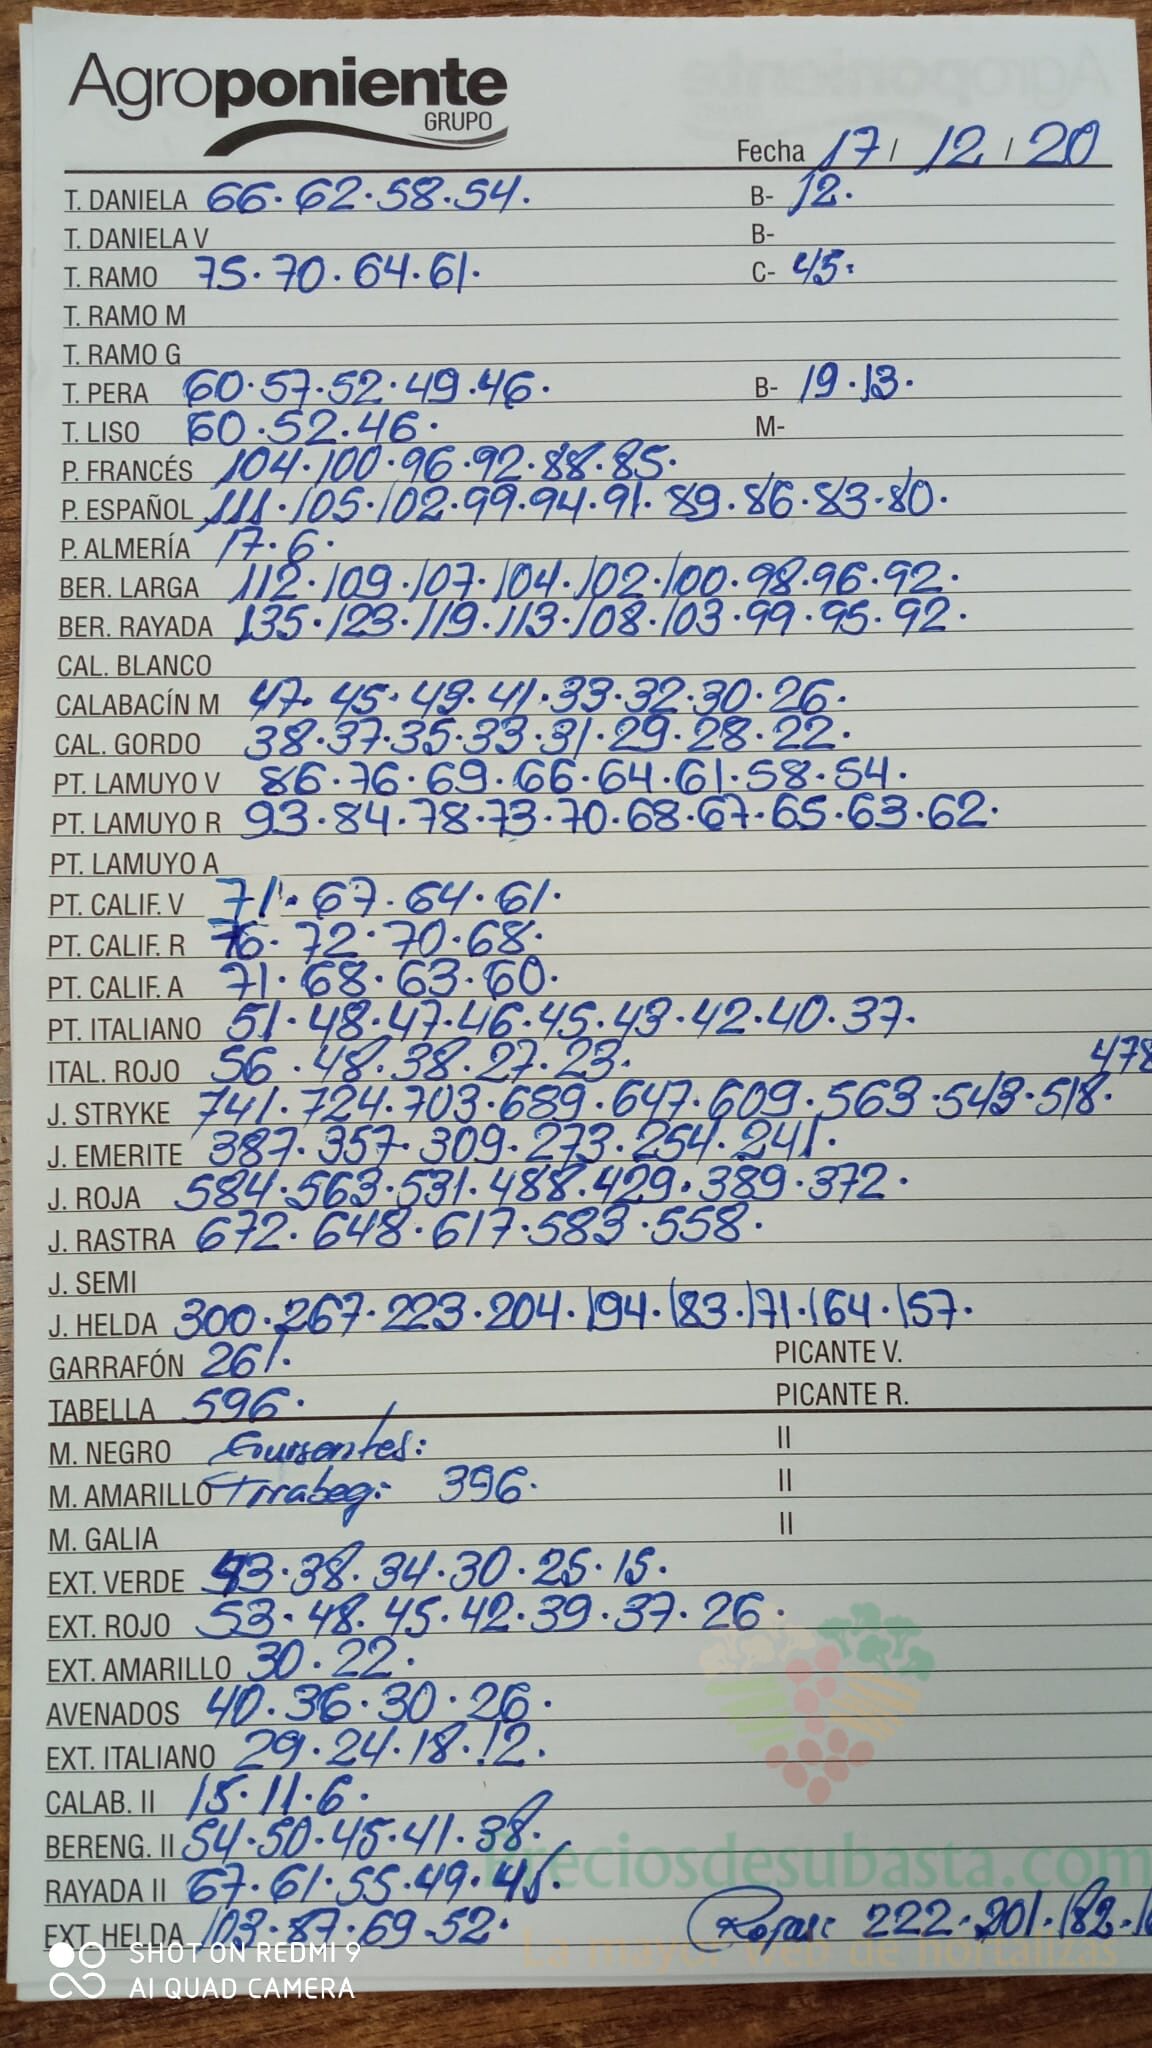 Agroponiente
GRUPO
Fecha 17 / 12 / 20
T. DANIELA 66. 62. 58. 54. B- 12.
T. DANIELA V B-
T. RAMO 75. 70. 64. 61. C- 45.
T. RAMO M
T. RAMO G
T. PERA 60. 57. 52. 49. 46. B- 19. 13.
T. LISO 60. 52. 46. M-
P. FRANCÉS 104. 100. 96. 92. 88. 85.
P. ESPAÑOL 111. 105. 102. 99. 94. 91. 89. 86. 83. 80.
P. ALMERÍA 17. 6.
BER. LARGA 112. 109. 107. 104. 102. 100. 98. 96. 92.
BER. RAYADA 135. 123. 119. 113. 108. 103. 99. 95. 92.
CAL. BLANCO
CALABACÍN M 47. 45. 43. 41. 33. 32. 30. 26.
CAL. GORDO 38. 37. 35. 33. 31. 29. 28. 22.
PT. LAMUYO V 86. 76. 69. 66. 64. 61. 58. 54.
PT. LAMUYO R 93. 84. 78. 73. 70. 68. 67. 65. 63. 62.
PT. LAMUYO A
PT. CALIF. V 71. 67. 64. 61.
PT. CALIF. R 76. 72. 70. 68.
PT. CALIF. A 71. 68. 63. 60.
PT. ITALIANO 51. 48. 47. 46. 45. 43. 42. 40. 37.
ITAL. ROJO 56. 48. 38. 27. 23. 478
J. STRYKE 741. 724. 703. 689. 647. 609. 563. 543. 518.
J. EMERITE 387. 357. 309. 273. 254. 241.
J. ROJA 584. 563. 531. 488. 429. 389. 372.
J. RASTRA 672. 648. 617. 583. 558.
J. SEMI
J. HELDA 300. 267. 223. 204. 194. 183. 171. 164. 157.
GARRAFÓN 261. PICANTE V.
TABELLA 596. PICANTE R.
M. NEGRO Guisantes: II
M. AMARILLO Tirabeq: 396. II
M. GALIA II
EXT. VERDE 43. 38. 34. 30. 25. 15.
EXT. ROJO 53. 48. 45. 42. 39. 37. 26.
EXT. AMARILLO 30. 22.
AVENADOS 40. 36. 30. 26.
EXT. ITALIANO 29. 24. 18. 12.
CALAB. II 15. 11. 6.
BERENG. II 54. 50. 45. 41. 38.
Preciosdesubasta.com
RAYADA II 67. 61. 55. 49. 45.
EXT. HELDA 103. 87. 69. 52. Rojas: 222. 201. 182.
La mayor web de hortalizas
SHOT ON REDMI 9
AI QUAD CAMERA